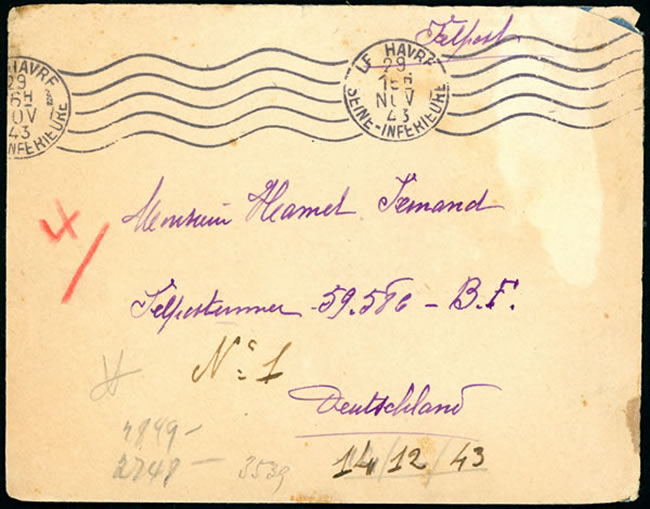 Felpost
HAVRE
29
16H
NOV
43
INFERIEURE
LE HAVRE
29
16H
NOV
43
SEINE-INFERIEURE
Monsieur Hamel Fernand
Felpostnumer 59.586 - B.F.
N° 1
Deutschland
14/12/43
4849-
2748-
3539